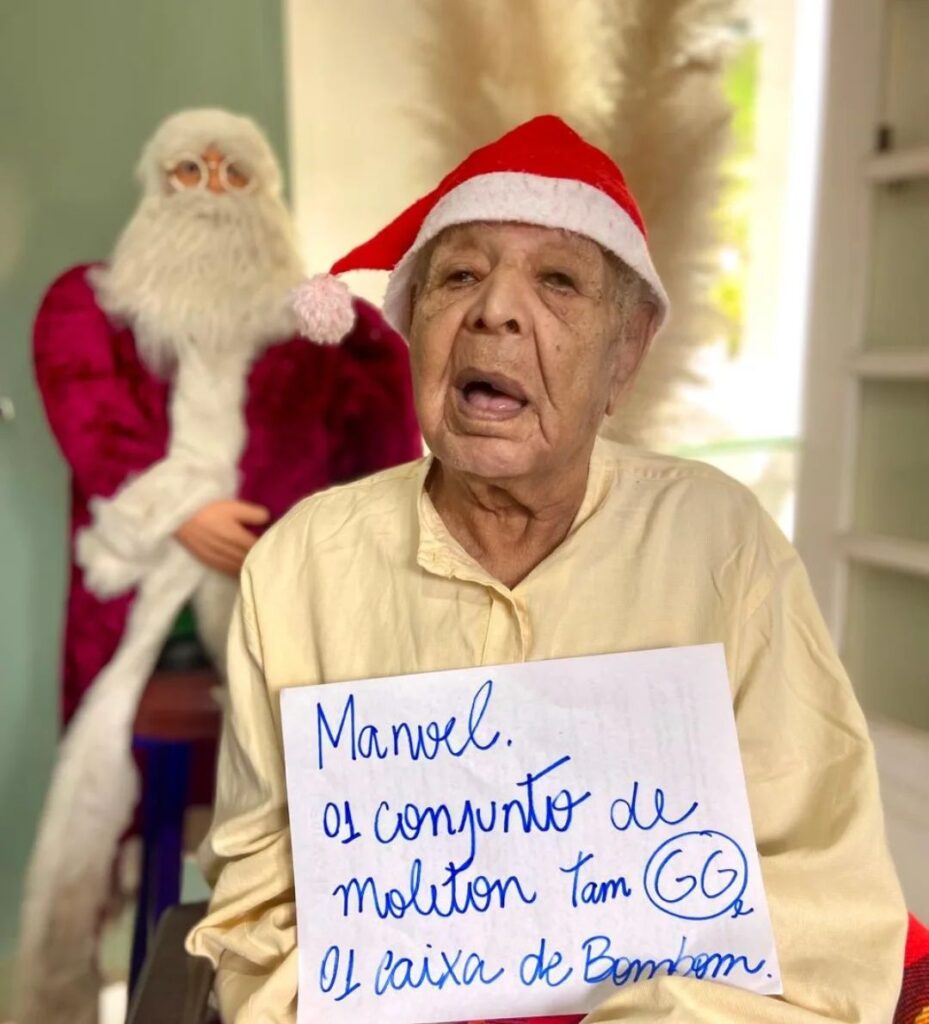 Manoel.
01 conjunto de
moliton Tam GG e
01 caixa de Bombom.